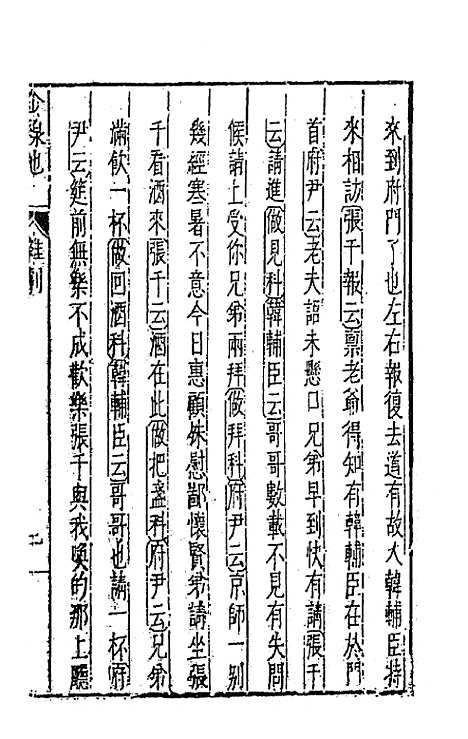 來到府門了也左右報復去道有故人韓輔臣特
來相訪張千報云稟老爺得知有韓輔臣在於門
首府尹云老夫語未懸口兄弟早到快有請張千
云請進做見科韓輔臣云哥哥數載不見有失問
候請上受你兄弟兩拜做拜科府尹云京師一别
幾經寒暑不意今日惠顧殊慰鄙懷賢弟請坐張
千看酒來張千云酒在此做把盞科府尹云兄弟
滿飲一杯做回酒科韓輔臣云哥哥也請一杯府
尹云筵前無樂不成歡樂張千與我喚的那上廳
金線池 雜劇